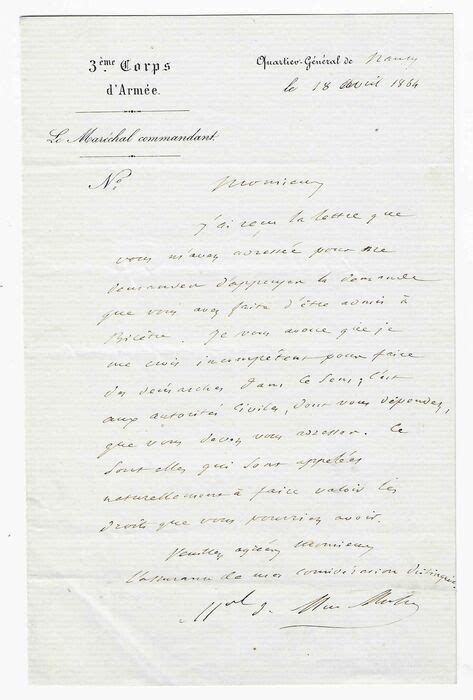 3ème Corps
d'Armée.
Le Maréchal commandant.
Quartier-Général de Nancy
le 18 avril 1864
No.
Monsieur
j'ai reçu la lettre que
vous m'avez adressée pour me
demander d'appuyer la demande
que vous avez faite d'être admis à
Bicêtre. Je vous avoue que je
me crois incompétent pour faire
des démarches dans ce sens; c'est
aux autorités civiles, dont vous dépendez,
que vous devez vous adresser. Ce
sont elles qui sont appelées
naturellement à faire valoir les
droits que vous pourriez avoir.
Veuillez agréer Monsieur
l'assurance de ma considération distinguée.
Mal de Mac Mahon